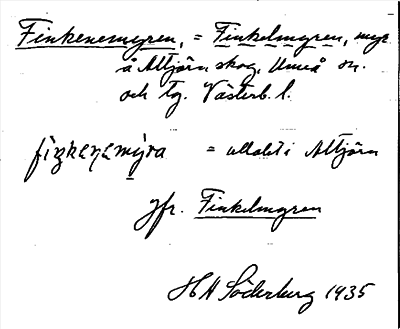 Finkenemyren, = Finkelmyren, myr
å Altjärn skog, Umeå sn.
och tg. Västerb. l.
fiŋkenemýra = uttalet i Altjärn
jfr. Finkelmyren
H Söderberg 1935